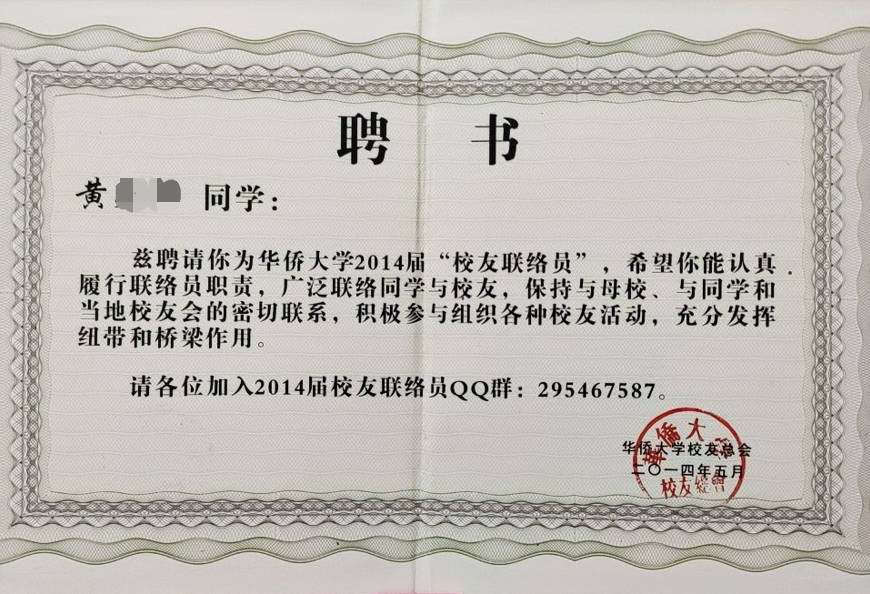 聘 书
黄 同学：
兹聘请你为华侨大学2014届“校友联络员”，希望你能认真
履行联络员职责，广泛联络同学与校友，保持与母校、与同学和
当地校友会的密切联系，积极参与组织各种校友活动，充分发挥
纽带和桥梁作用。
请各位加入2014届校友联络员QQ群：295467587。
华侨大学校友总会
二〇一四年五月
華僑大
校友總會